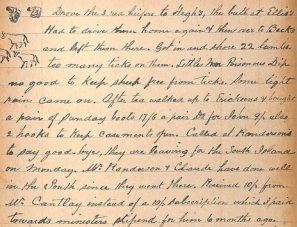 Drove the 3 red heifers to Hegh's, the bull at Ellis's
Had to drive them home again & then over to Becks
and left them there. Got in and shore 22 lambs
too many ticks on them. Little's Non Poisonous Dip
no good to keep sheep free from ticks. Some light
rain came on. After tea walked up to Ericksens & bought
a pair of Sunday boots 17/6 a pair for John 9/- also
2 hooks to keep casements open. Called at Hendersons
to say good-bye, they are leaving for the South Island
on Monday. Mr Henderson & Charlie have done well
in the South since they went there. Received 10/- from
Mr Cantlay instead of a 10/- subscription which I paid
towards ministers stipend for him 6 months ago.